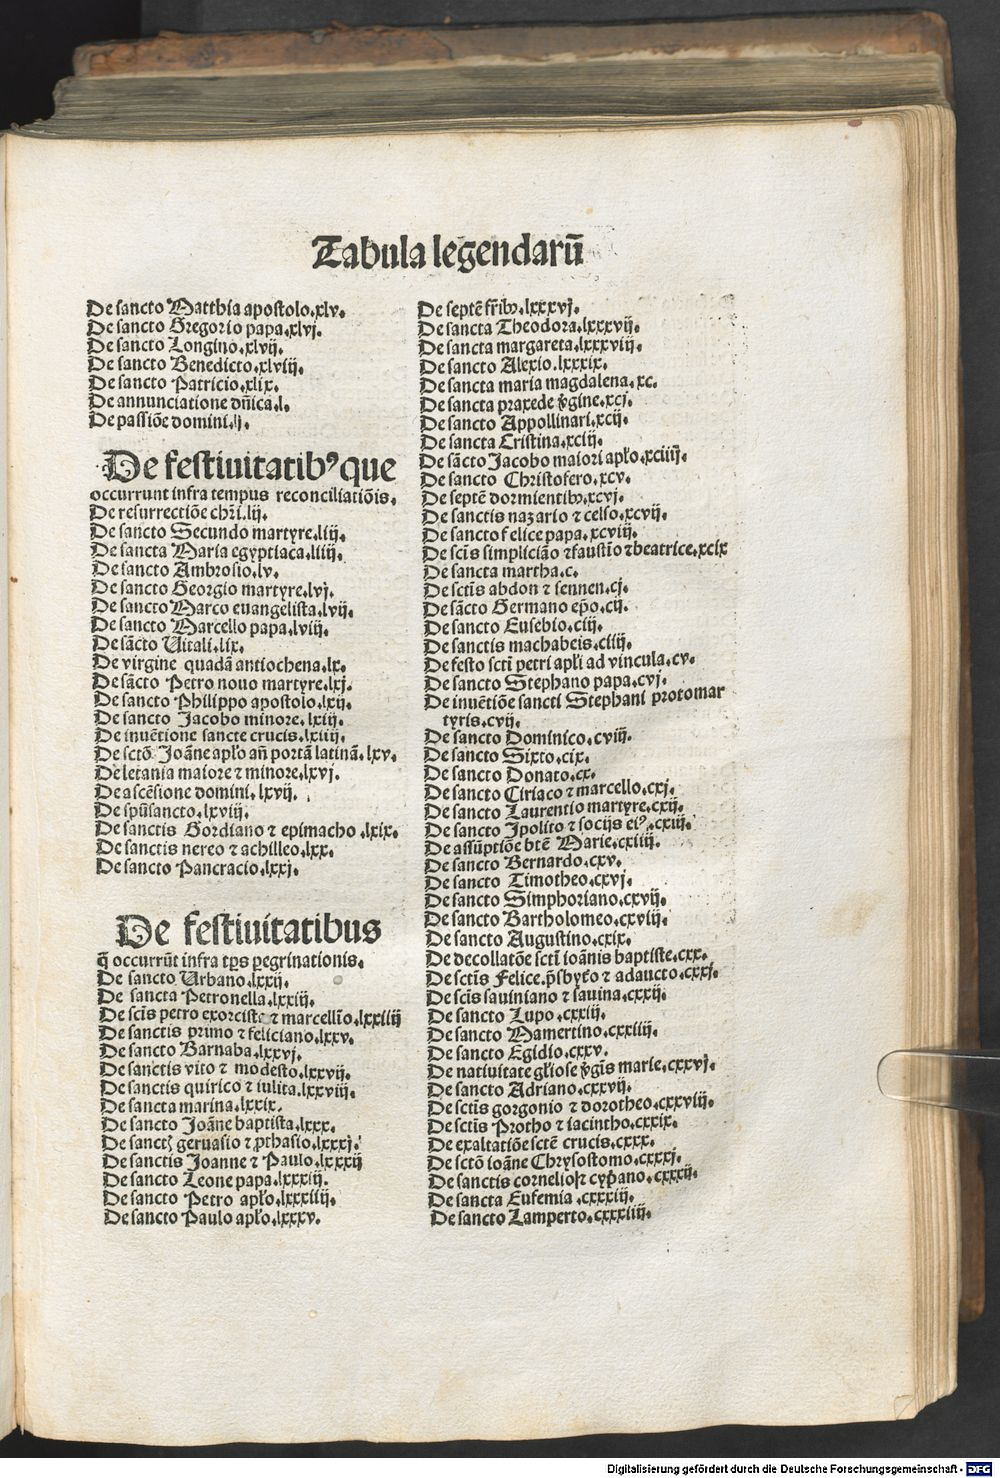 Tabula legendarū
De sancto Matthia apostolo.xlv.
De sancto Gregorio papa.xlvj.
De sancto Longino.xlvij.
De sancto Benedicto.xlviij.
De sancto Patricio.xlix.
De annunciatione dñica.l.
De passiōe domini.lj.
De festiuitatibꝰ que
occurrunt infra tempus reconciliatiōis.
De resurrectiōe chri̅.lij.
De sancto Secundo martyre.liij.
De sancta Maria egyptiaca.liiij.
De sancto Ambrosio.lv.
De sancto Georgio martyre.lvj.
De sancto Marco euangelista.lvij.
De sancto Marcello papa.lviij.
De sācto Uitali.lix.
De virgine quadā antiochena.lx.
De sācto Petro nouo martyre.lxj.
De sancto Philippo apostolo.lxij.
De sancto Jacobo minore.lxiij.
De inuētione sancte crucis.lxiiij.
De sctō Joāne apl̄o an̄ portā latinā.lxv.
De letania maiore ⁊ minore.lxvj.
De ascēsione domini.lxvij.
De spūsancto.lxviij.
De sanctis Gordiano ⁊ epimacho.lxix.
De sanctis nereo ⁊ achilleo.lxx.
De sancto Pancracio.lxxj.
De festiuitatibus
q̄ occurrūt infra tp̄s p̲egrinationis.
De sancto Urbano.lxxij.
De sancta Petronella.lxxiij.
De scīs petro exorcista ⁊ marcellīo.lxxiiij
De sanctis primo ⁊ feliciano.lxxv.
De sancto Barnaba.lxxvj.
De sanctis vito ⁊ modesto.lxxvij.
De sanctis quirico ⁊ iulita.lxxviij.
De sancta marina.lxxix.
De sancto Joāne baptista.lxxx.
De sanctꝭ geruasio ⁊ ꝓthasio.lxxxj.
De sanctis Joanne ⁊ Paulo.lxxxij
De sancto Leone papa.lxxxiij.
De sancto Petro apl̄o.lxxxiiij.
De sancto Paulo apl̄o.lxxxv.
De septē fr̄ibꝰ.lxxxvj.
De sancta Theodora.lxxxvij.
De sancta margareta.lxxxviij.
De sancto Alexio.lxxxix.
De sancta maria magdalena.xc.
De sancta praxede v̄gine.xcj.
De sancto Appollinari.xcij.
De sancta Cristina.xciij.
De sācto Jacobo maiori apl̄o.xciiij.
De sancto Christofero.xcv.
De septē dormientibꝰ.xcvj.
De sanctis nazario ⁊ celso.xcvij.
De sancto felice papa.xcviij.
De scīs simpliciāo ⁊faustīo ⁊beatrice.xcix
De sancta martha.c.
De sctīs abdon ⁊ sennen.cj.
De sācto Germano ep̄o.cij.
De sancto Eusebio.ciij.
De sanctis machabeis.ciiij.
De festo sctī petri apl̄i ad vincula.cv.
De sancto Stephano papa.cvj.
De inuētiōe sancti Stephani protomar
tyris.cvij.
De sancto Dominico.cviij.
De sancto Sixto.cix.
De sancto Donato.cx.
De sancto Ciriaco ⁊ marcello.cxj.
De sancto Laurentio martyre.cxij.
De sancto Ipolito ⁊ socijs eiꝰ.cxiij.
De assūptiōe btē Marie.cxiiij.
De sancto Bernardo.cxv.
De sancto Timotheo.cxvj.
De sancto Simphoriano.cxvij.
De sancto Bartholomeo.cxviij.
De sancto Augustino.cxix.
De decollatōe sctī ioānis baptiste.cxx.
De sctīs Felice.p̄sbyt̄o ⁊ adaucto.cxxj.
De scīs sauiniano ⁊ sauina.cxxij.
De sancto Lupo.cxxiij.
De sancto Mamertino.cxxiiij.
De sancto Egidio.cxxv.
De natiuitate gl̄iose v̄gīs marie.cxxvj.
De sancto Adriano.cxxvij.
De sctīs gorgonio ⁊ dorotheo.cxxviij.
De sctīs Protho ⁊ iacintho.cxxix.
De exaltatiōe sctē crucis.cxxx.
De sctō ioāne Chrysostomo.cxxxj.
De sanctis cornelioꝝ cyp̄ano.cxxxij.
De sancta Eufemia.cxxxiij.
De sancto Lamperto.cxxxiiij.
Digitalisierung gefördert durch die Deutsche Forschungsgemeinschaft - DFG